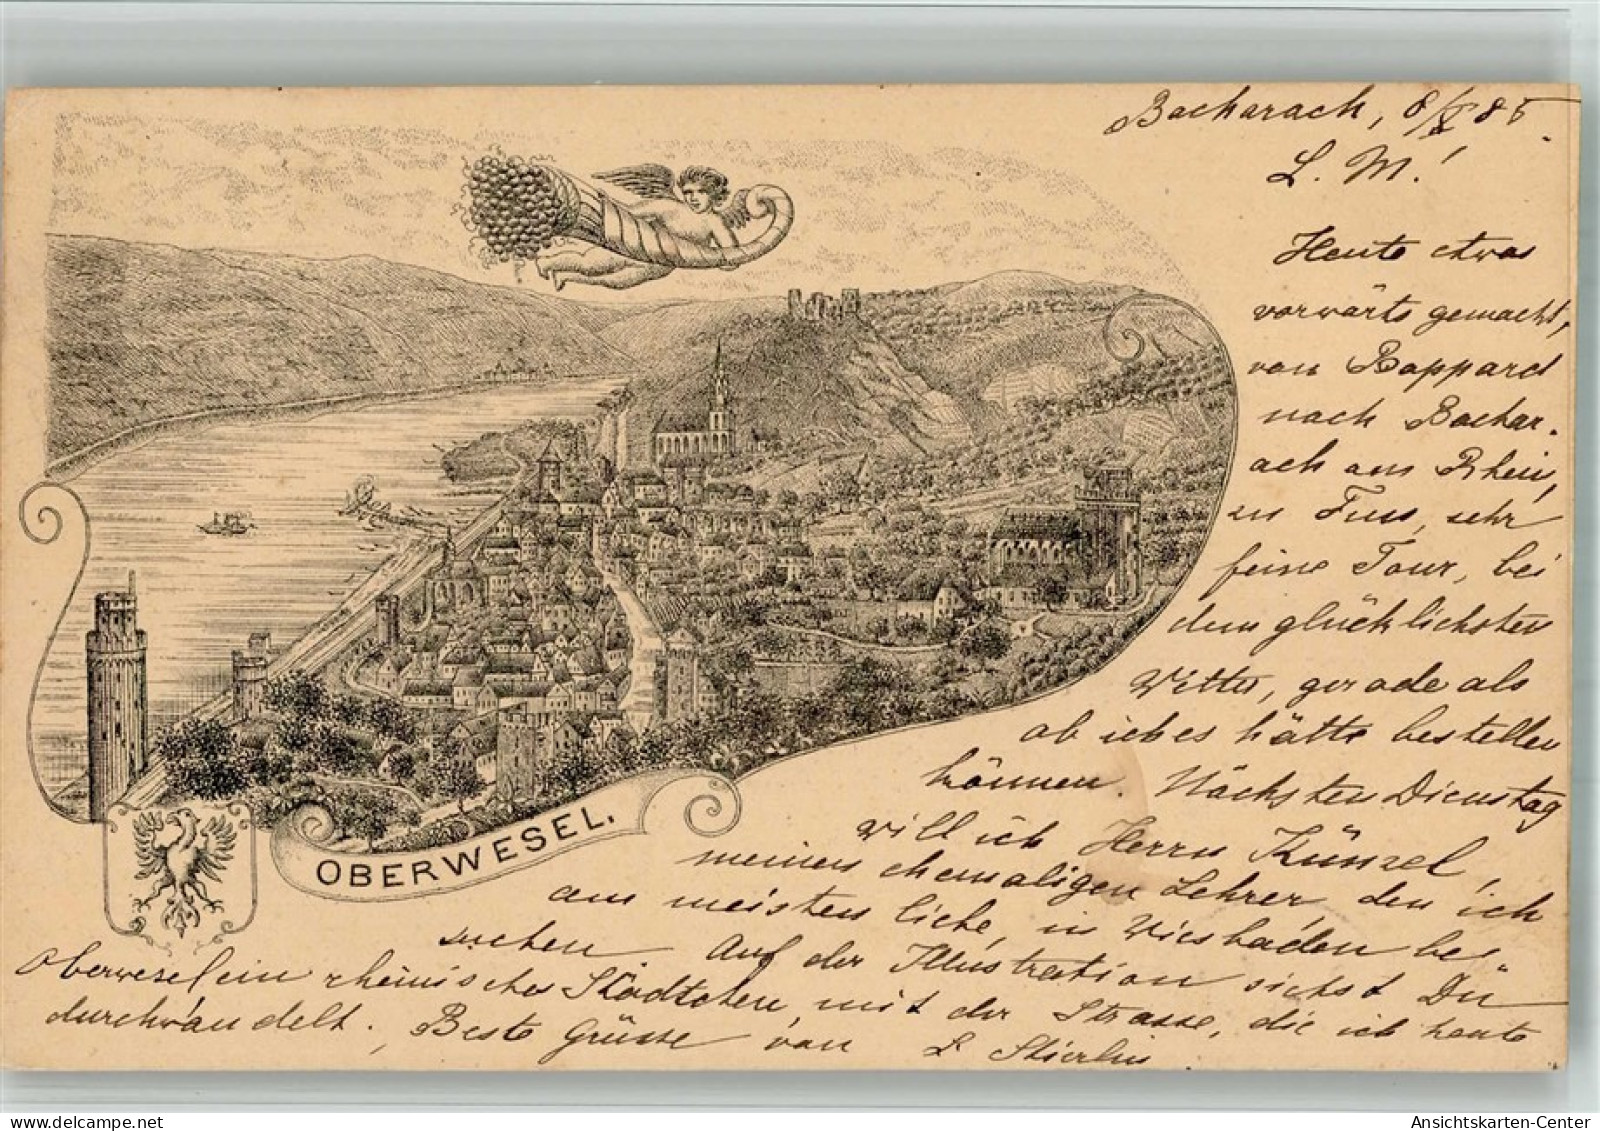 Bacharach, 8/X 85.
L. M.!
Heute etwas
vorwärts gemacht,
von Boppard
nach Bachar-
ach am Rhein,
zu Fuss, sehr
feine Tour, bei
dem glücklichsten
Wetter, gerade als
ob ich es hätte bestellen
können. Nächsten Dienstag
will ich Herrn Künzel,
meinen ehemaligen Lehrer, den ich
am meisten liebe, in Wiesbaden be-
suchen. Auf der Illustration siehst Du
Oberwesel ein rheinisches Städtchen, mit der Strasse, die ich heute
durchwandelt. Beste Grüsse von L Stierlin
OBERWESEL.
delcampe.net
Ansichtskarten-Center